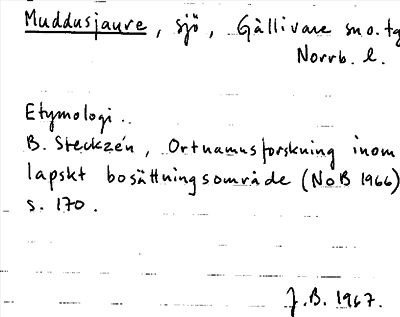 Muddusjaure, sjö, Gällivare sn o. tg
Norrb. l.
Etymologi..
B. Steckzén, Ortnamnsforskning inom
lapskt bosättningsområde (NoB 1966)
s. 170.
J.B. 1967.